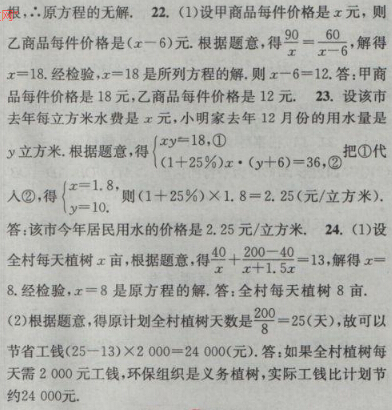 根,∴原方程的无解. 22. (1)设甲商品每件价格是 x 元,则
乙商品每件价格是(x-6)元. 根据题意,得90/x=60/(x-6),解得
x=18. 经检验,x=18 是所列方程的解. 则 x-6=12. 答:甲商
品每件价格是 18 元,乙商品每件价格是 12 元. 23. 设该市
去年每立方米水费是 x 元,小明家去年 12 月份的用水量是
y 立方米. 根据题意,得{xy=18,① (1+25%)x·(y+6)=36,② 把①代
入②,得{x=1.8, y=10. 则(1+25%)×1.8=2.25(元/立方米).
答:该市今年居民用水的价格是 2.25 元/立方米. 24. (1)设
全村每天植树 x 亩,根据题意,得40/x+(200-40)/(x+1.5x)=13,解得 x=
8. 经检验,x=8 是原方程的解. 答:全村每天植树 8 亩.
(2)根据题意,得原计划全村植树天数是200/8=25(天),故可以
节省工钱(25-13)×2 000=24 000(元). 答:如果全村植树每
天需 2 000 元工钱,环保组织是义务植树,实际工钱比计划节
约24 000元.